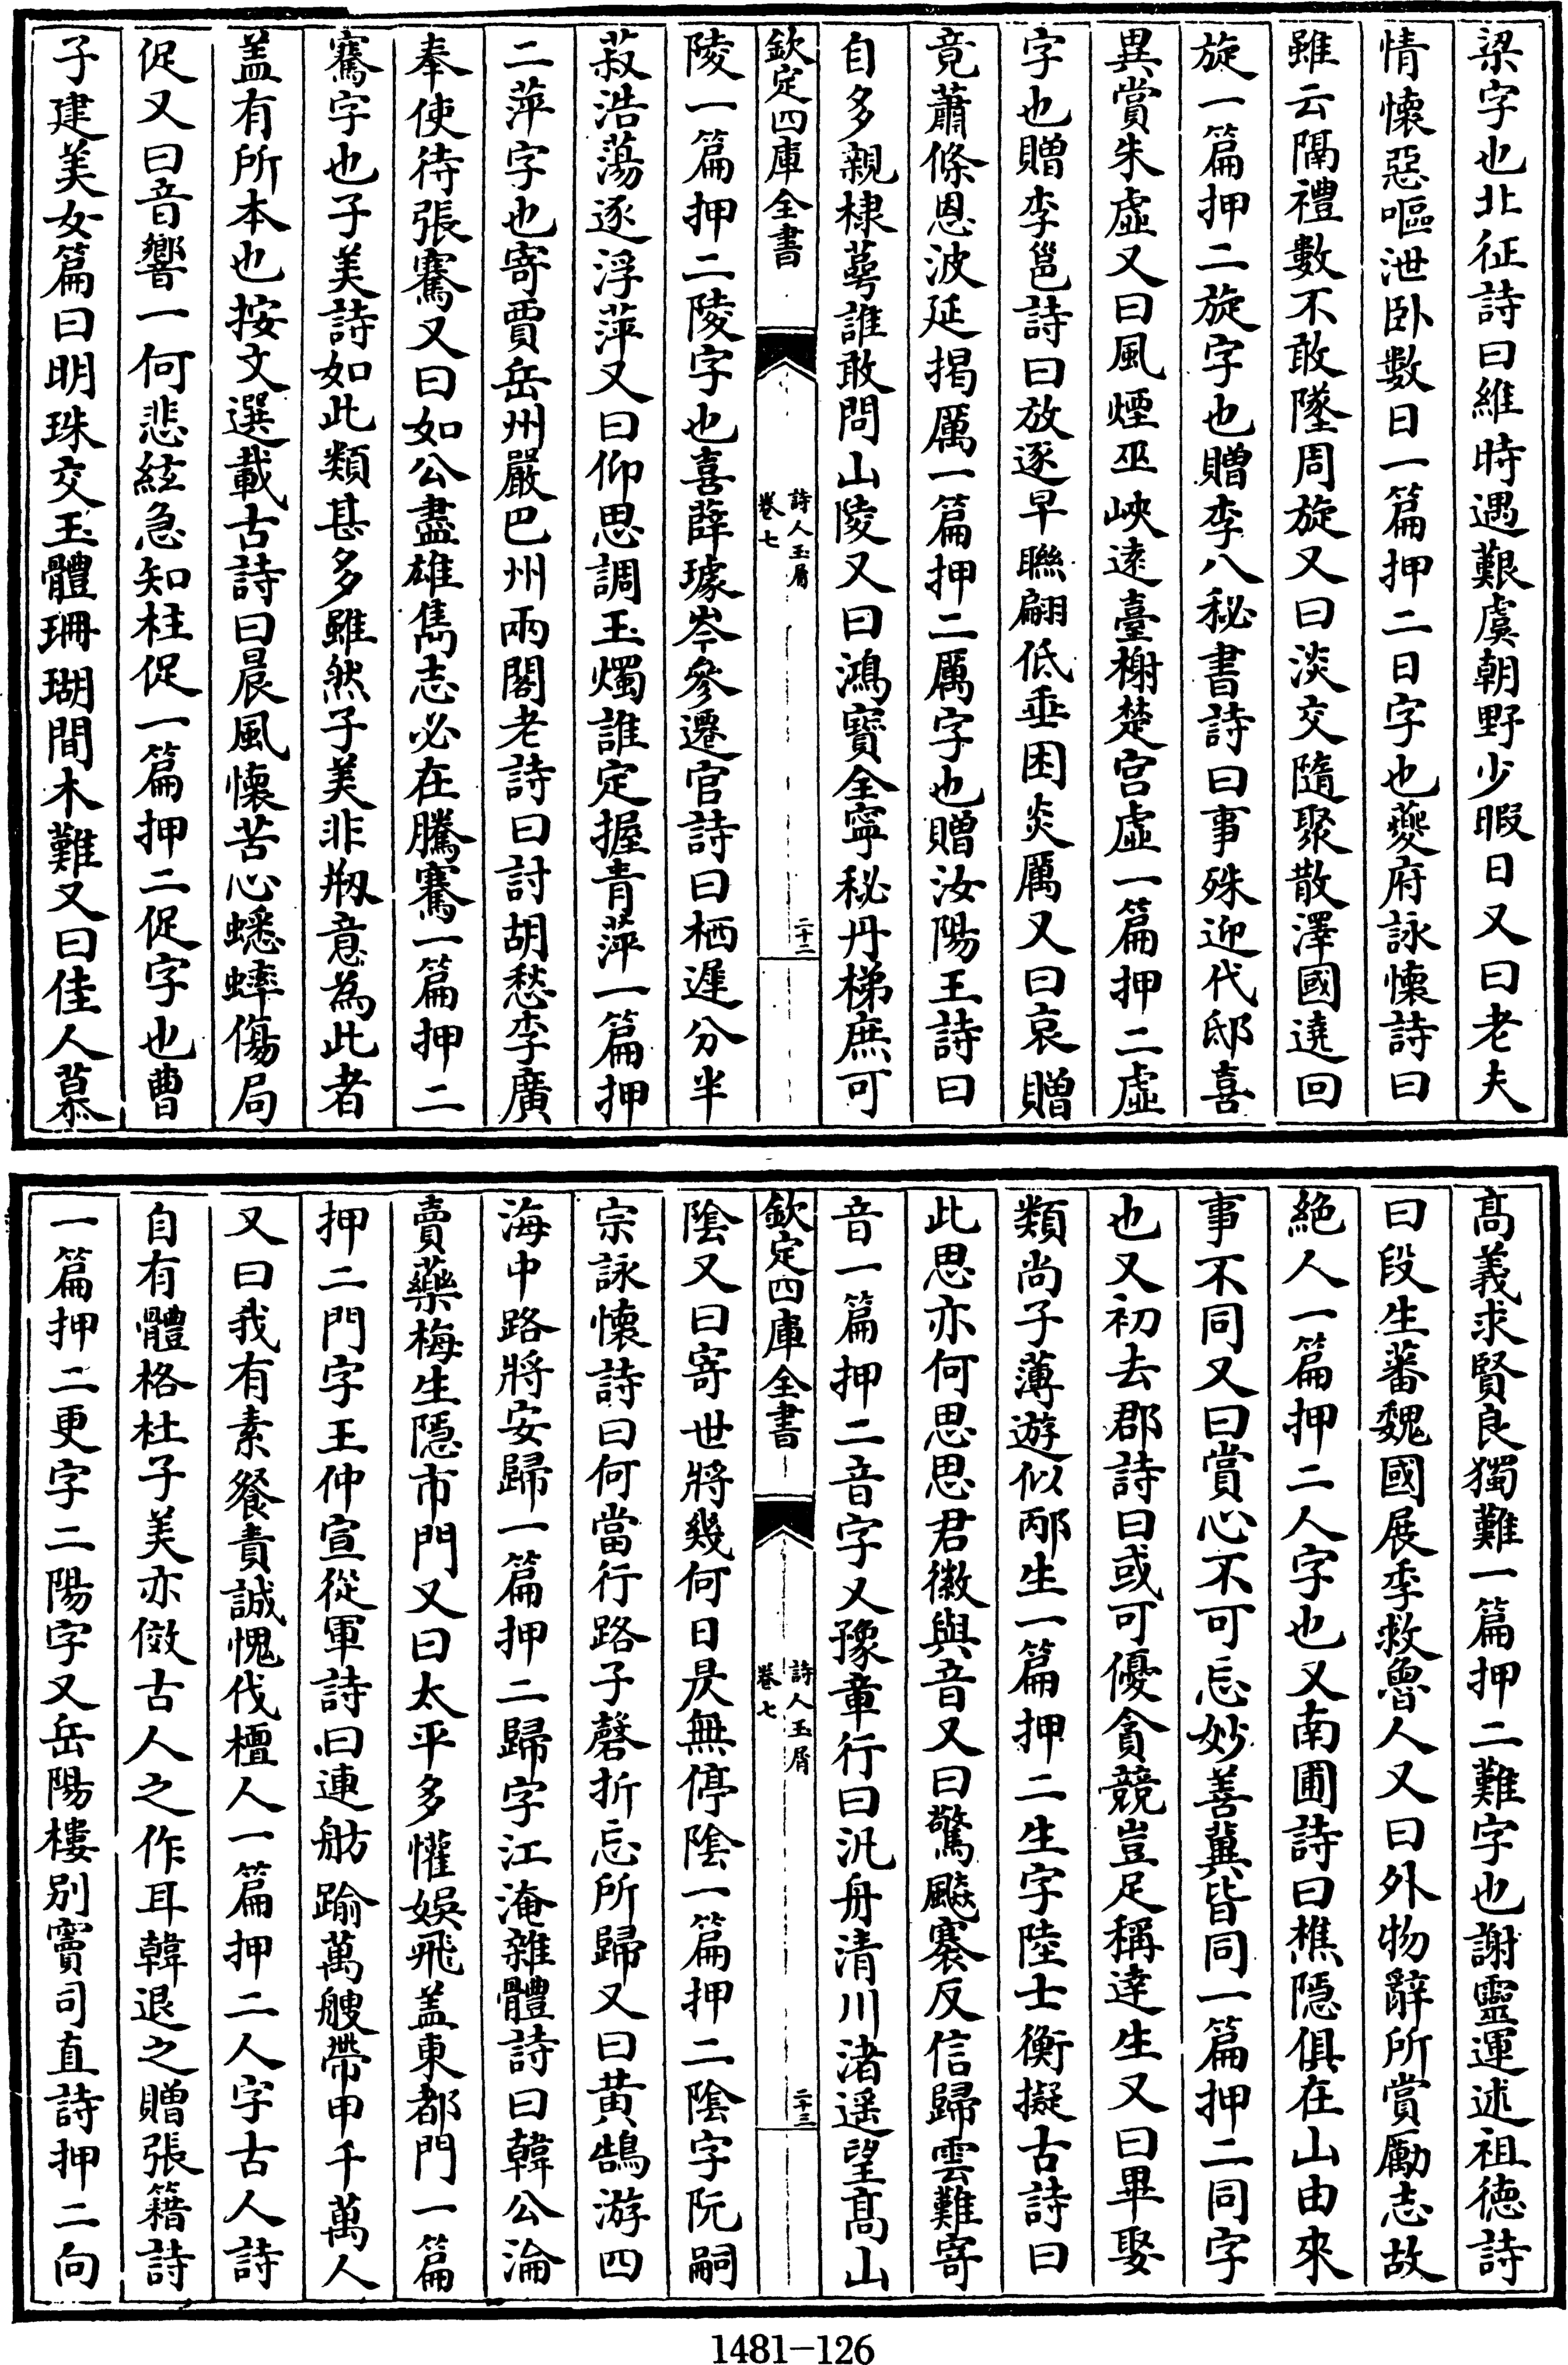 梁字也北征詩曰維時遇艱虞朝野少暇日又曰老夫
情懷惡嘔泄卧數日一篇押二日字也夔府詠懷詩曰
雖云隔禮數不敢墜周旋又曰淡交隨聚散澤國遶回
旋一篇押二旋字也贈李八秘書詩曰事殊迎代邸喜
異賞朱虛又曰風煙巫峽逺臺榭楚宫虛一篇押二虛
字也贈李邕詩曰放逐早聯翩低垂困炎厲又曰哀贈
竟蕭條恩波延揭厲一篇押二厲字也贈汝陽王詩曰
自多親棣萼誰敢問山陵又曰鴻寳全寧秘丹梯庶可
欽定四庫全書
詩人玉屑
卷七
二十二
陵一篇押二陵字也喜薛璩岑參遷官詩曰栖遲分半
菽浩蕩逐浮萍又曰仰思調玉燭誰定握青萍一篇押
二萍字也寄賈岳州嚴巴州兩閣老詩曰討胡愁李廣
奉使待張騫又曰如公盡雄雋志必在騰騫一篇押二
騫字也子美詩如此類甚多雖然子美非剏意為此者
盖有所本也按文選載古詩曰晨風懷苦心蟋蟀傷局
促又曰音響一何悲絃急知柱促一篇押二促字也曹
子建美女篇曰明珠交玉體珊瑚間木難又曰佳人慕
髙義求賢良獨難一篇押二難字也謝靈運述祖徳詩
曰段生蕃魏國展季救魯人又曰外物辭所賞勵志故
絶人一篇押二人字也又南圃詩曰樵隱俱在山由來
事不同又曰賞心不可忘妙善冀皆同一篇押二同字
也又初去郡詩曰或可優貪競豈足稱達生又曰畢娶
類尚子薄遊似邴生一篇押二生字陸士衡擬古詩曰
此思亦何思思君徽與音又曰驚飈褰反信歸雲難寄
音一篇押二音字又豫章行曰汎舟清川渚遥望髙山
欽定四庫全書
詩人玉屑
卷七
二十三
隂又曰寄世將幾何日昃無停隂一篇押二隂字阮嗣
宗詠懷詩曰何當行路子磬折忘所歸又曰黄鵠游四
海中路將安歸一篇押二歸字江淹雜體詩曰韓公淪
賣藥梅生隱市門又曰太平多懽娛飛盖東都門一篇
押二門字王仲宣從軍詩曰連舫踰萬艘帶甲千萬人
又曰我有素餐責誠愧伐檀人一篇押二人字古人詩
自有體格杜子美亦倣古人之作耳韓退之贈張籍詩
一篇押二更字二陽字又岳陽樓別竇司直詩押二向
1481-126